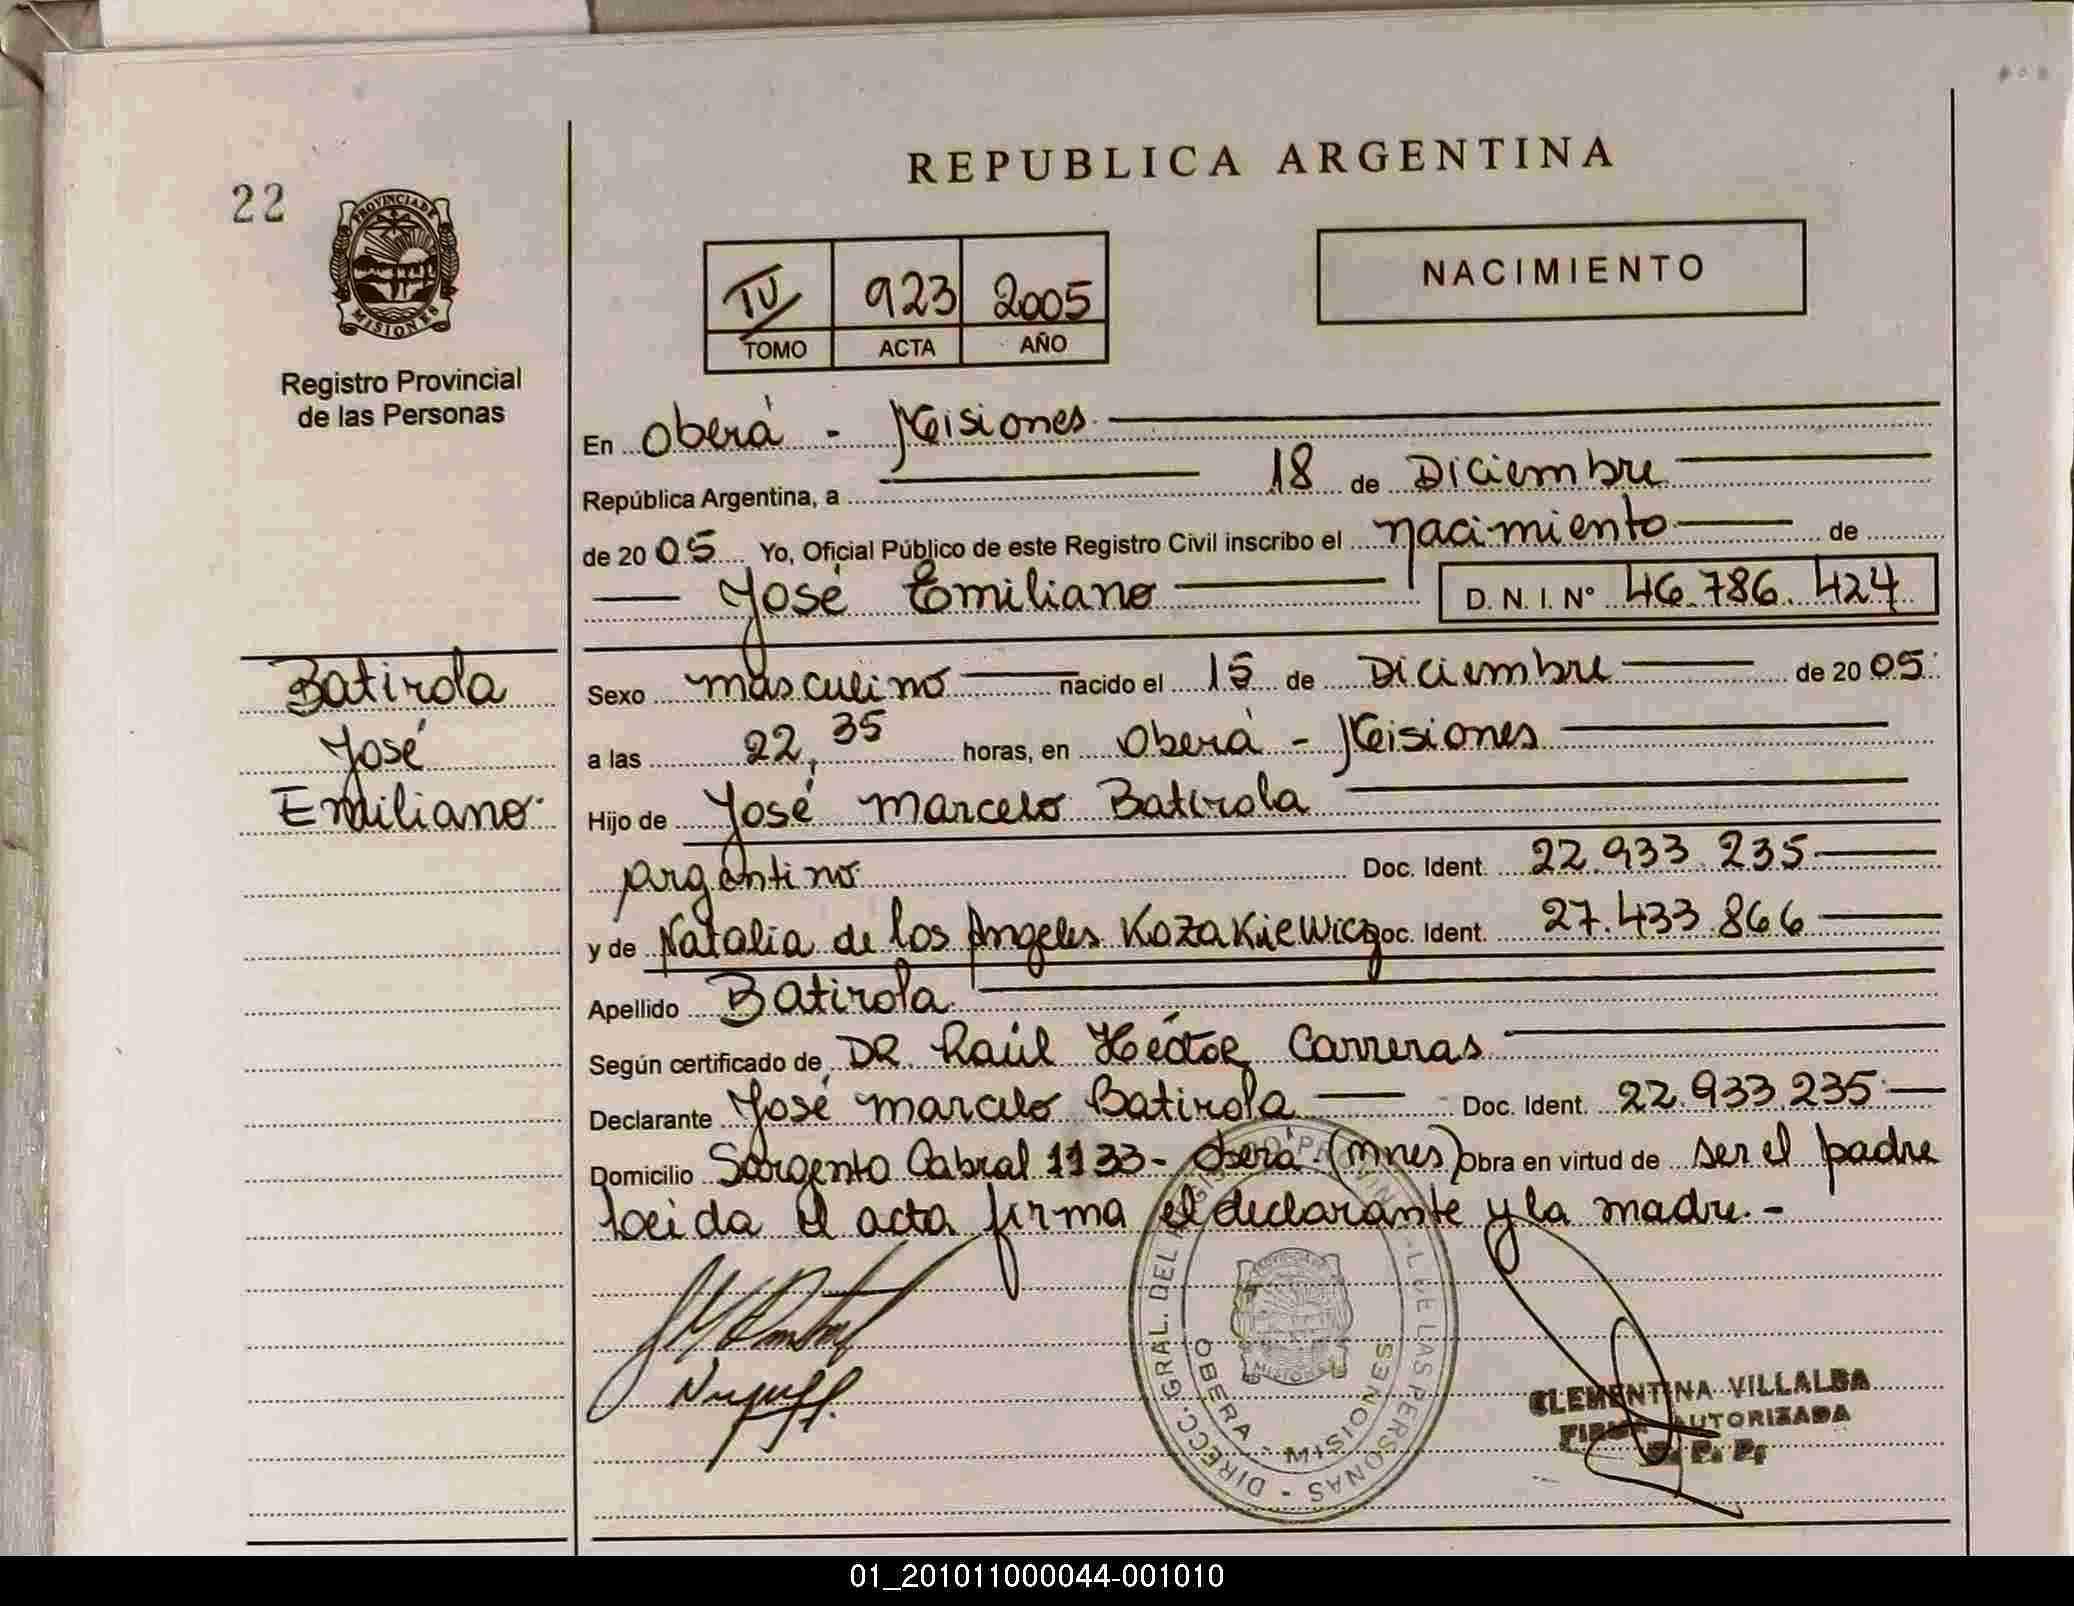 REPUBLICA ARGENTINA
22
PROVINCIA DE
MISIONES
Registro Provincial
de las Personas
NACIMIENTO
IV 923 2005
TOMO ACTA AÑO
En Oberá - Misiones
República Argentina, a 18 de Diciembre
de 2005 Yo, Oficial Público de este Registro Civil inscribo el nacimiento de
José Emiliano D. N. I. Nº 46.786.424
Batirola
José
Emiliano
Sexo masculino nacido el 15 de Diciembre de 2005
a las 22,35 horas, en Oberá - Misiones
Hijo de José Marcelo Batirola
Argentino Doc. Ident. 22.933.235
y de Natalia de los Angeles Kozakiewicz Doc. Ident. 27.433.866
Apellido Batirola
Según certificado de DR Raúl Héctor Carreras
Declarante José Marcelo Batirola Doc. Ident. 22.933.235
Domicilio Sargento Cabral 1133 - Oberá (Mnes) Obra en virtud de ser el padre
Leida el acta firma el declarante y la madre.-
DIRECC. GRAL. DEL REGISTRO PROVINCIAL DE LAS PERSONAS -
OBERA - MISIONES
MISIONES
CLEMENTINA VILLALBA
FIRMA AUTORIZADA
R. P. P.
01_201011000044-001010